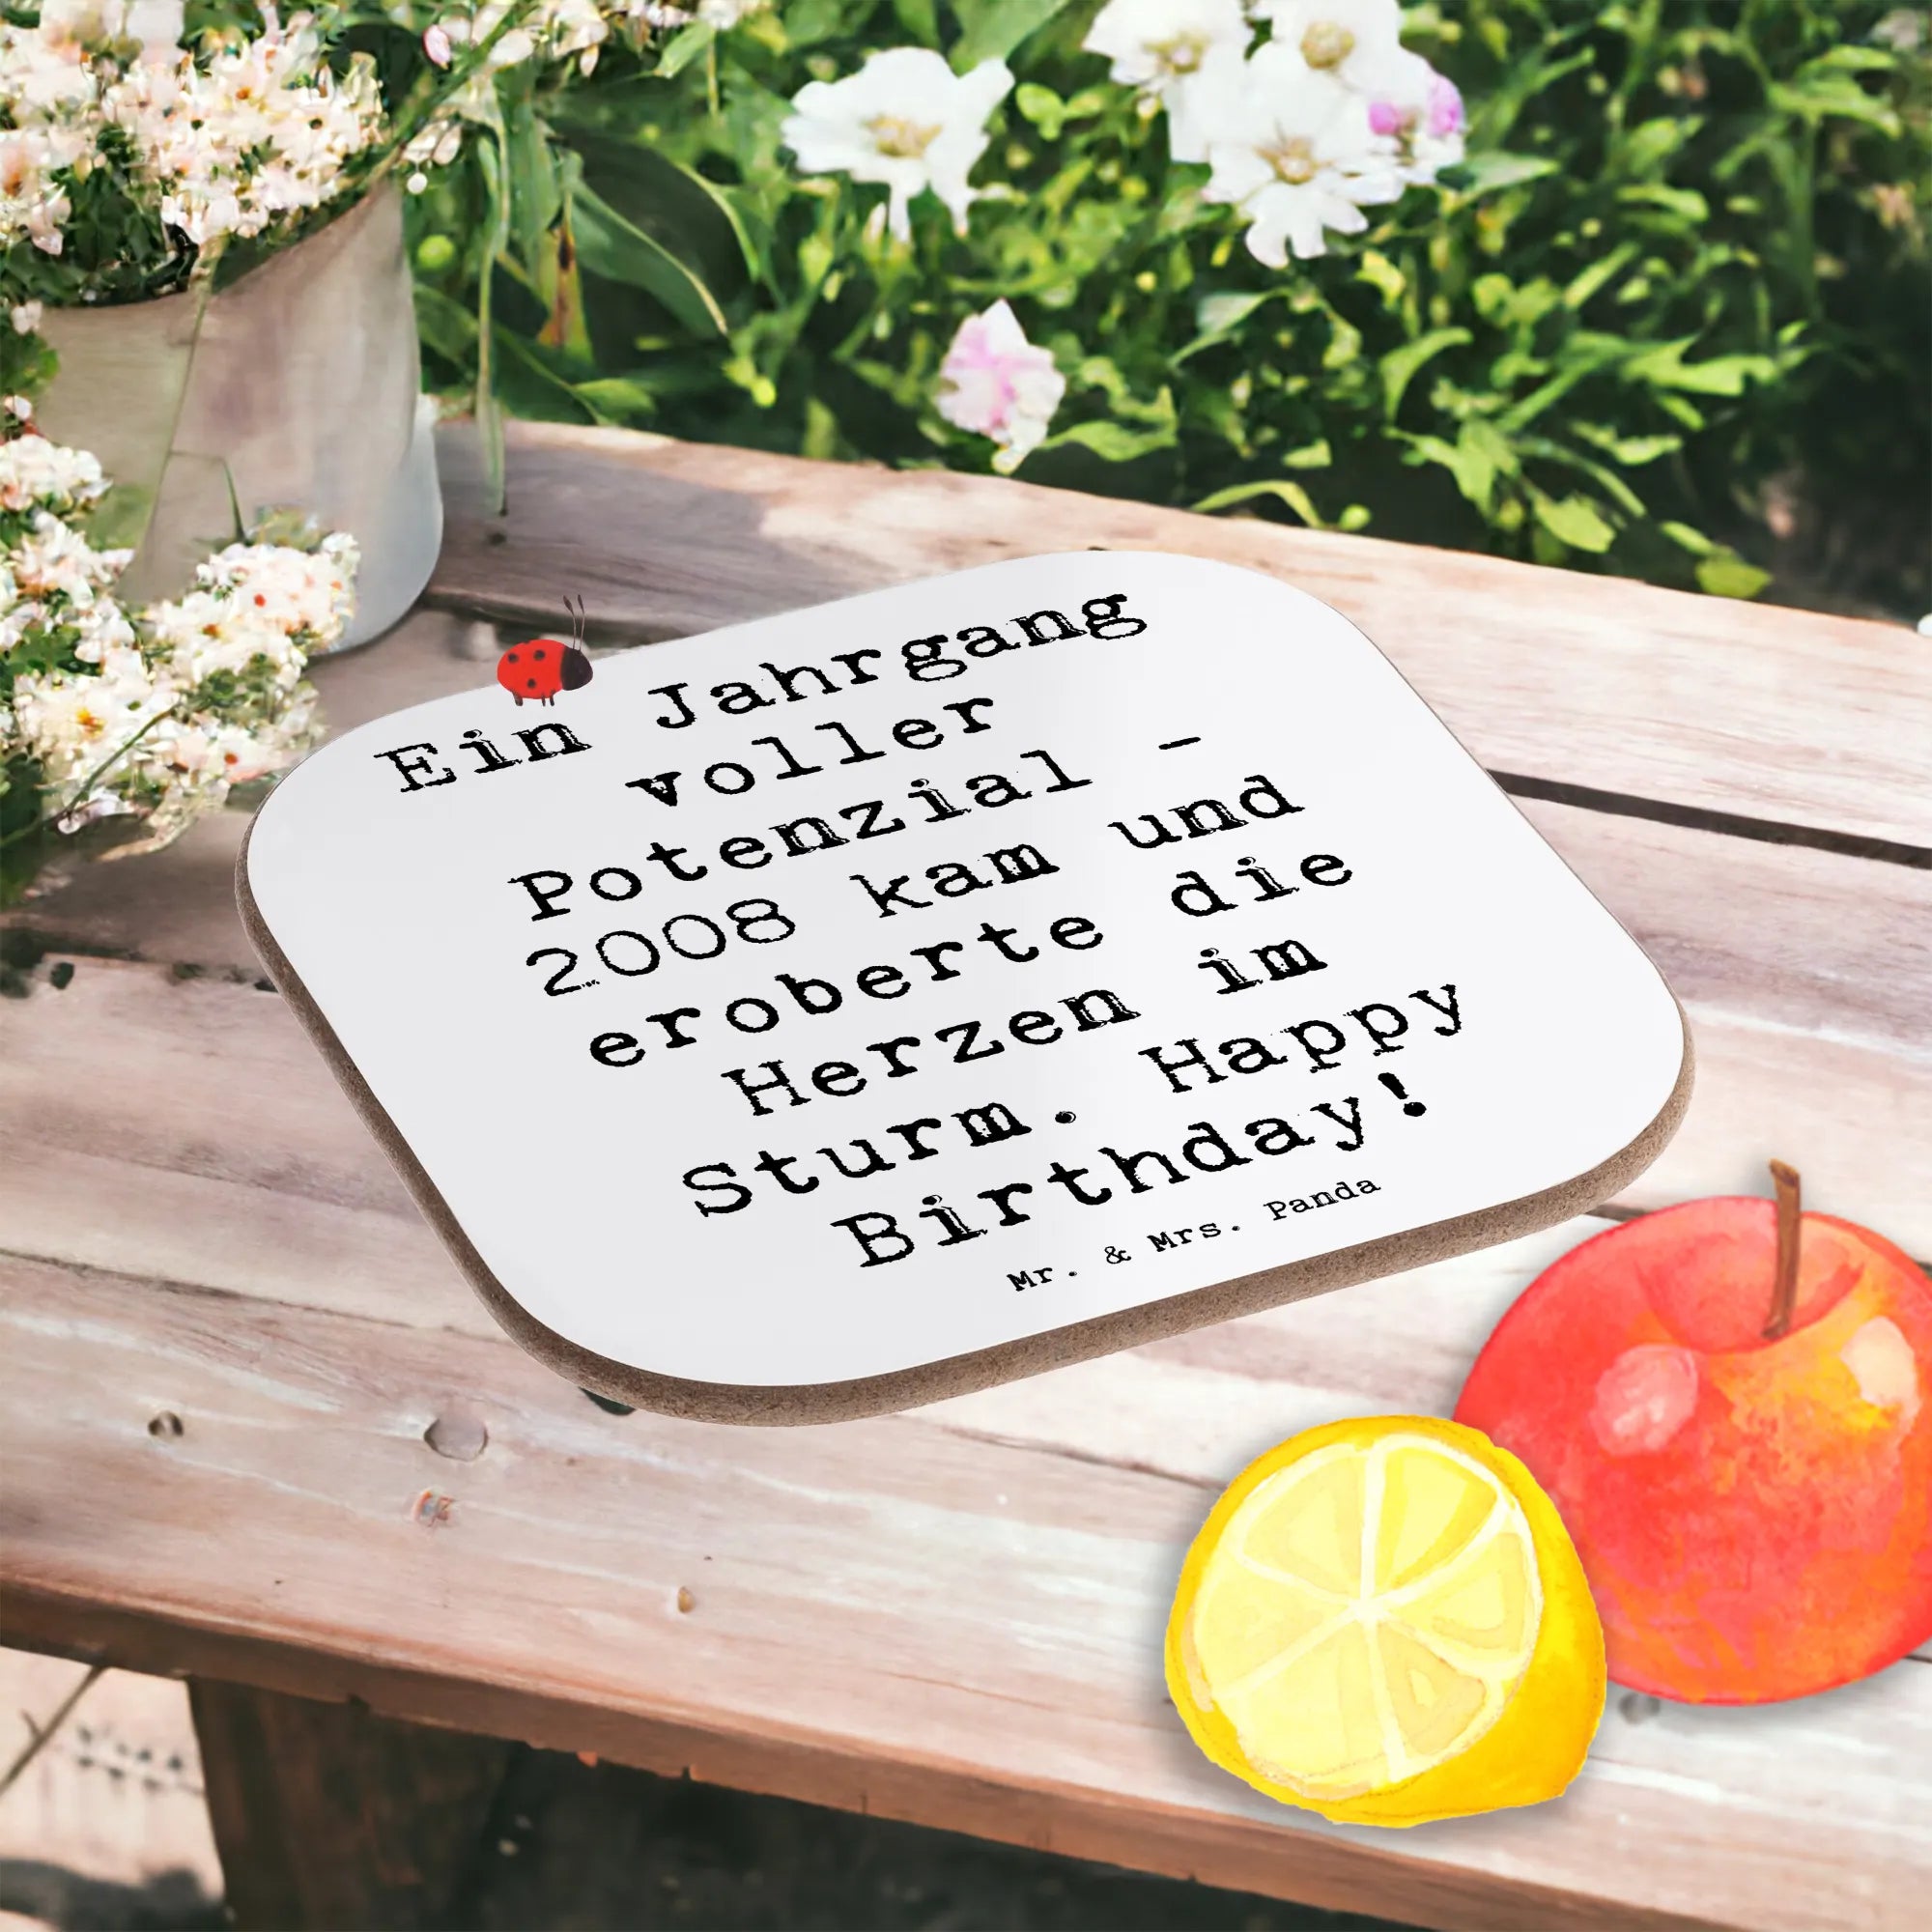 Ein Jahrgang
voller
Potenzial -
2008 kam und
eroberte die
Herzen im
Sturm. Happy
Birthday!
Mr. & Mrs. Panda